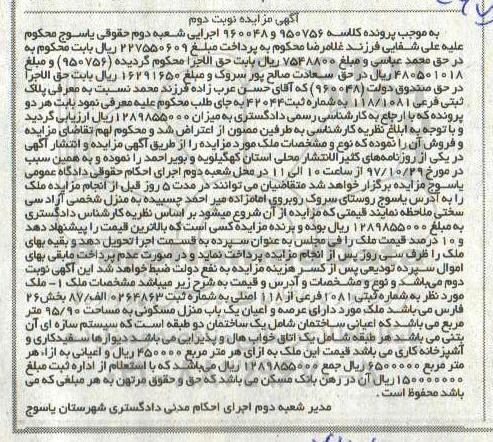 آگهی مزایده نوبت دوم
به موجب پرونده کلاسه ۹۵۰۷۵۶ و ۹۶۰۰۴۸ اجرایی شعبه دوم حقوقی یاسوج محکوم
علیه علی شفایی فرزند غلامرضا محکوم به پرداخت مبلغ ۲۲۷۵۵۰۶۰۹ ریال بابت محکوم به
در حق محمد عباسی و مبلغ ۷۵۴۸۸۰۰ ریال بابت حق الاجرا محکوم گردیده (۹۵۰۷۵۶) و مبلغ
۴۸۰۵۰۱۰۱۸ ریال در حق سعادت صالح پور سروک و مبلغ ۱۶۲۹۱۶۵۰ ریال بابت حق الاجرا
در حق صندوق دولت (۹۶۰۰۴۸) که آقای حسن عرب زاده فرزند محمد نسبت به معرفی پلاک
ثبتی فرعی ۱۱۸/۱۰۸۱ به شماره ثبت ۴۲۰۴۴ به جای طلب محکوم علیه معرفی نمود بابت هر دو
پرونده که با ارجاع به کارشناسی رسمی دادگستری به میزان ۱۲۸۹۸۵۵۰۰۰ ریال ارزیابی گردید
و با توجه به ابلاغ نظریه کارشناسی به طرفین مصون از اعتراض شد و محکوم لهم تقاضای مزایده
و فروش آن را نموده که نوع و مشخصات ملک مورد مزایده را از طریق آگهی مزایده و انتشار آگهی
در یکی از روزنامه‌های کثیرالانتشار محلی استان کهگیلویه و بویراحمد را نموده و به همین سبب
در مورخ ۹۷/۱۰/۲۹ از ساعت ۱۰ الی ۱۱ در محل شعبه دوم اجرای احکام حقوقی دادگاه عمومی
یاسوج مزایده برگزار خواهد شد متقاضیان می توانند در مدت ۵ روز قبل از انجام مزایده ملک
را به آدرس یاسوج روستای سروک روبروی امامزاده میر احمد چسبیده به منزل شخصی آزاد سی
سختی ملاحظه نمایند قیمتی که مزایده از آن شروع میشود بر اساس نظریه کارشناس دادگستری
به مبلغ ۱۲۸۹۸۵۵۰۰۰ ریال بوده و برنده مزایده کسی است که بالاترین قیمت را پیشنهاد دهد
و ۱۰ درصد قیمت ملک را فی مجلس به عنوان سپرده به قسمت اجرا تحویل دهد و بقیه بهای
ملک را ظرف سی روز پس از انجام مزایده پرداخت نماید و در صورت عدم پرداخت مابقی بهای
اموال سپرده تودیعی پس از کسر هزینه مزایده به نفع دولت ضبط خواهد شد این آگهی نوبت
دوم می‌باشد و نوع و مشخصات و آدرس و قیمت به شرح زیر میباشد مشخصات ملک ۱- ملک
مورد نظر به شماره ثبتی ۱۰۸۱ فرعی از ۱۱۸ اصلی به شماره ثبت ۰۲۶۴۸۶۳ الف/۸۷ بخش ۲۶
فارس می باشد ملک مورد دارای عرصه و اعیان یک باب منزل مسکونی به مساحت ۹۵/۹۰ متر
مربع می باشد که اعیانی ساختمان شامل یک ساختمان دو طبقه است که سیستم سازه ای آن
بتنی می باشد هر طبقه شامل یک اتاق خواب هال و پذیرایی می باشد دیوارها سفیدکاری و
آشپزخانه کاری می باشد قیمت این ملک به ازای هر متر مربع ۴۵۰۰۰۰۰ ریال و اعیانی به ازاء هر
متر مربع ۶۵۰۰۰۰۰ ریال جمع ۱۲۸۹۸۵۵۰۰۰ ریال می‌باشد که با استعلام از اداره ثبت مبلغ
۱۵۰۰۰۰۰۰۰ ریال آن در رهن بانک مسکن می باشد که حق و حقوق مرتهن به هر مبلغی که می
باشد محفوظ است .
مدیر شعبه دوم اجرای احکام مدنی دادگستری شهرستان یاسوج